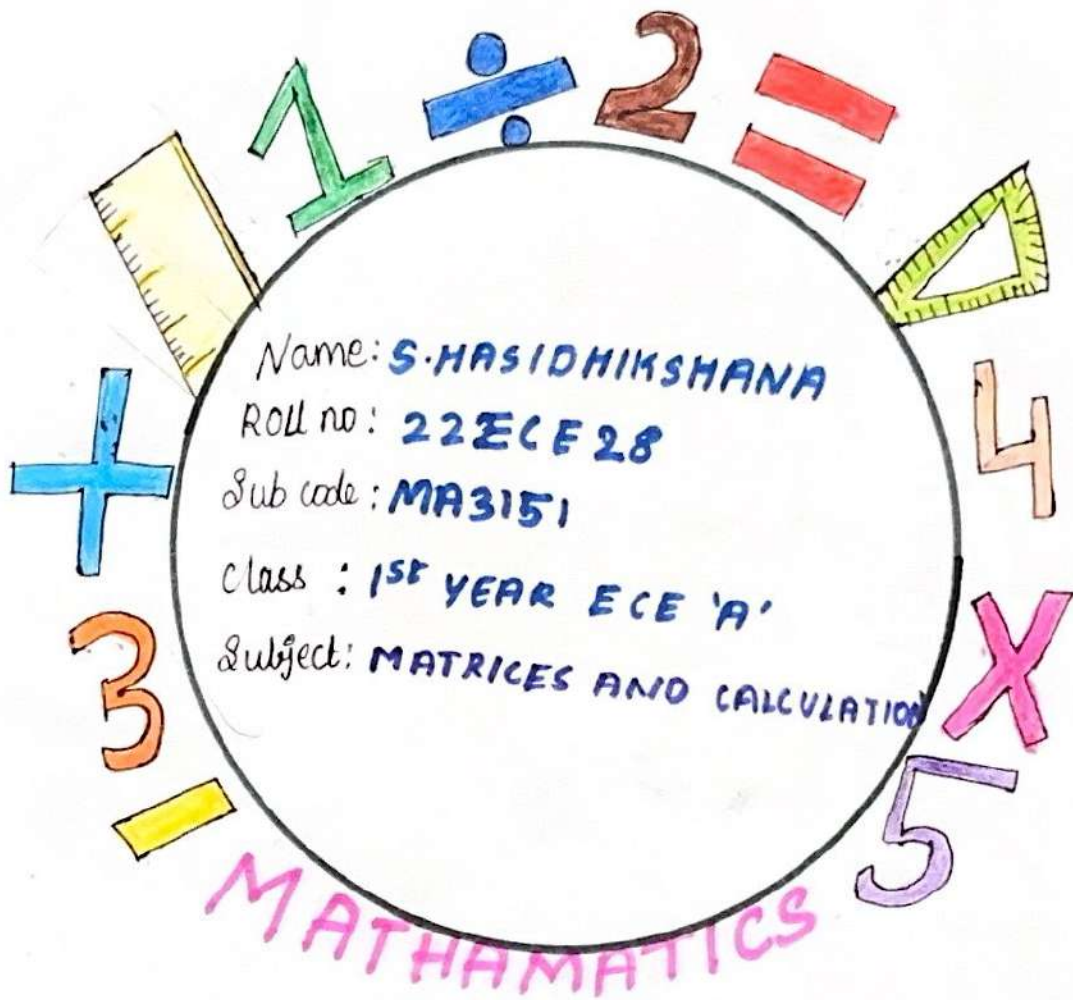 1 ÷ 2 =
4
+
3
×
5
−
Name: S.HASIDHIKSHANA
Roll no: 22ECE28
Sub code: MA3151
Class : 1st YEAR ECE 'A'
Subject: MATRICES AND CALCULATION
MATHAMATICS